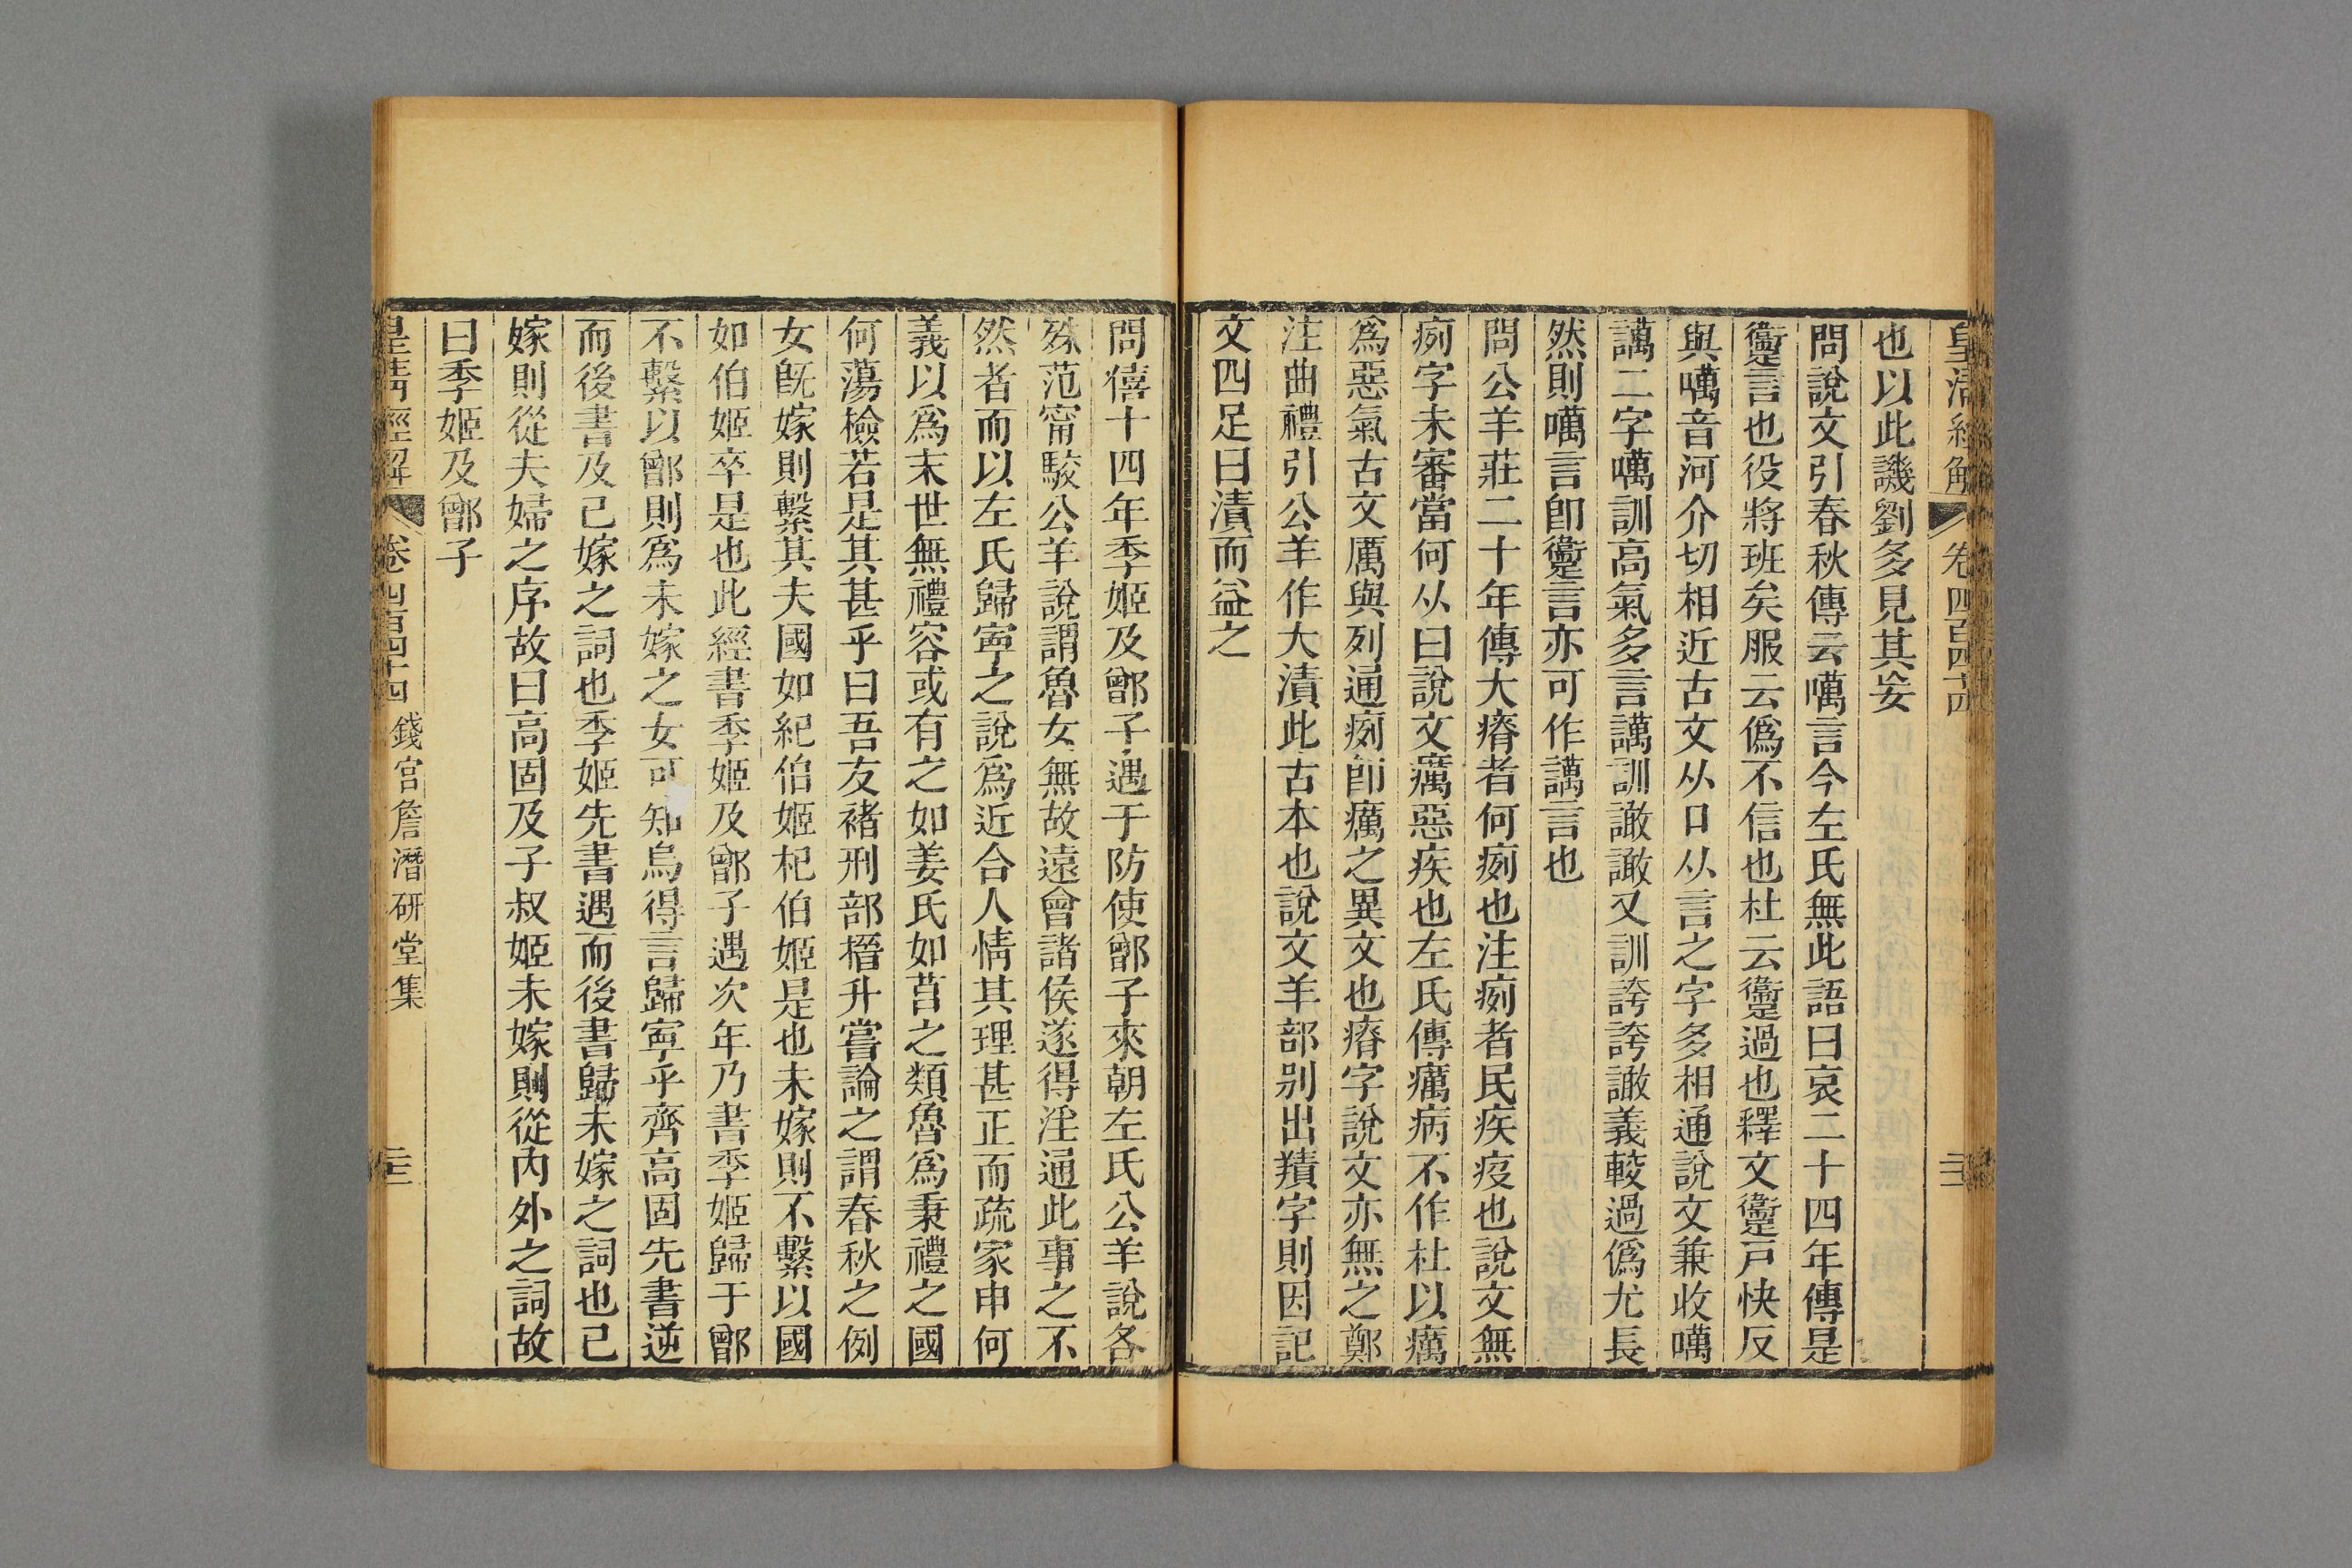 皇清經解 卷四百四十四
也以此譏劉多見其妄
問說文引春秋傳云噧言今左氏無此語曰哀二十四年傳是
躗言也役將班矣服云僞不信也杜云躗過也釋文躗戸快反
與噧音河介切相近古文从口从言之字多相通說文兼收噧
譪二字噧訓高氣多言譪訓譀譀又訓誇誇譀義較過僞尤長
然則噧言卽躗言亦可作譪言也
問公羊莊二十年傳大瘠者何㾐也注㾐者民疾疫也說文無
㾐字未審當何从曰說文癘惡疾也左氏傳癘病不作杜以癘
爲惡氣古文厲與列通㾐卽癘之異文也瘠字說文亦無之鄭
注曲禮引公羊作大漬此古本也說文羊部別出羵字則因記
文四足曰漬而益之
問僖十四年季姬及鄫子遇于防使鄫子來朝左氏公羊說各
殊范甯駁公羊說謂魯女無故遠會諸侯遂得淫通此事之不
然者而以左氏歸寧之說爲近合人情其理甚正而疏家申何
義以爲末世無禮容或有之如姜氏如莒之類魯爲秉禮之國
何蕩檢若是其甚乎曰吾友褚刑部搢升嘗論之謂春秋之例
女旣嫁則繫其夫國如紀伯姬杞伯姬是也未嫁則不繫以國
如伯姬卒是也此經書季姬及鄫子遇次年乃書季姬歸于鄫
不繫以鄫則爲未嫁之女可知烏得言歸寧乎齊高固先書逆
而後書及己嫁之詞也季姬先書遇而後書歸未嫁之詞也已
嫁則從夫婦之序故曰高固及子叔姬未嫁則從內外之詞故
曰季姬及鄫子
皇清經解 卷四百四十四 錢宫詹潛研堂集